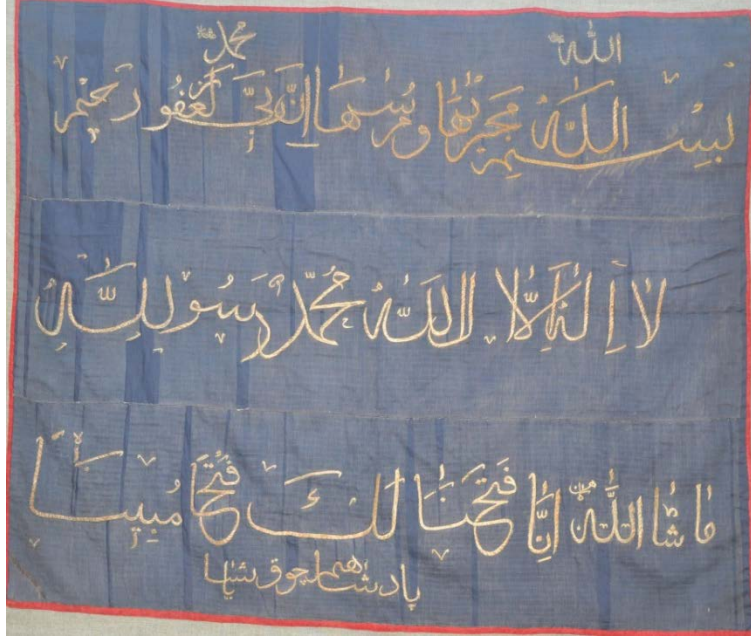 الله محمد
بسم الله مجريها ومرسها ان ربي لغفور رحيم
لا اله الا الله محمد رسول الله
ما شا الله انا فتحنا لك فتحا مبينا
پادشاهم چوق يشا